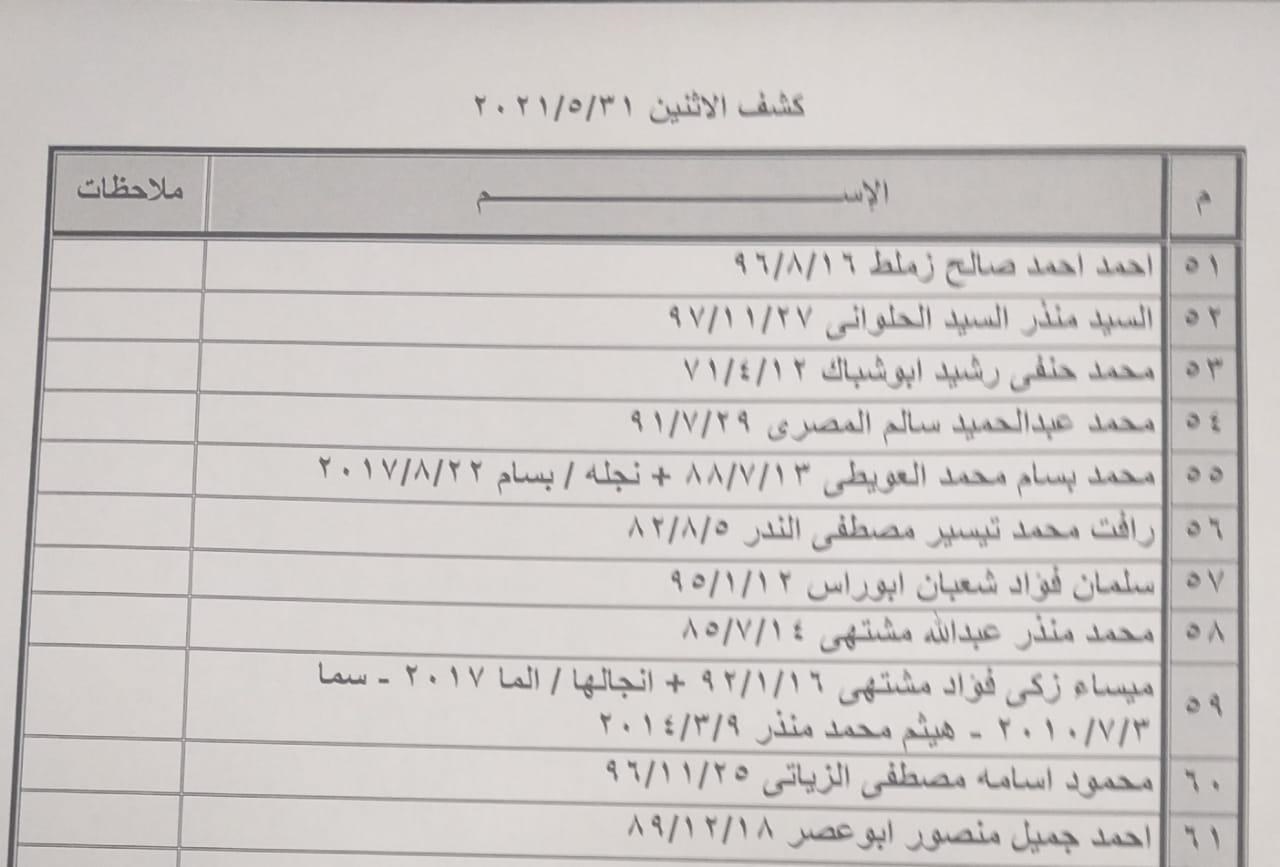 كشف الاثنين ٢٠٢١/٥/٣١
م الإســـــــــــــــــــــم ملاحظات
٥١ احمد احمد صالح زملط ٩٦/٨/١٦
٥٢ السيد منذر السيد الحلوانى ٩٧/١١/٢٧
٥٣ محمد حنفى رشيد ابوشباك ٧١/٤/١٢
٥٤ محمد عبدالحميد سالم المصرى ٩١/٧/٢٩
٥٥ محمد بسام محمد العويطى ٨٨/٧/١٣ + نجله / بسام ٢٠١٧/٨/٢٢
٥٦ رافت محمد تيسير مصطفى الندر ٨٢/٨/٥
٥٧ سلمان فؤاد شعبان ابوراس ٩٥/١/١٢
٥٨ محمد منذر عبدالله مشتهى ٨٥/٧/١٤
٥٩ ميساء زكى فؤاد مشتهى ٩٢/١/١٦ + انجالها / الما ٢٠١٧ - سما
٢٠١٠/٧/٣ - هيثم محمد منذر ٢٠١٤/٣/٩
٦٠ محمود اسامه مصطفى الزياتى ٩٦/١١/٢٥
٦١ احمد جميل منصور ابوعصر ٨٩/١٢/١٨